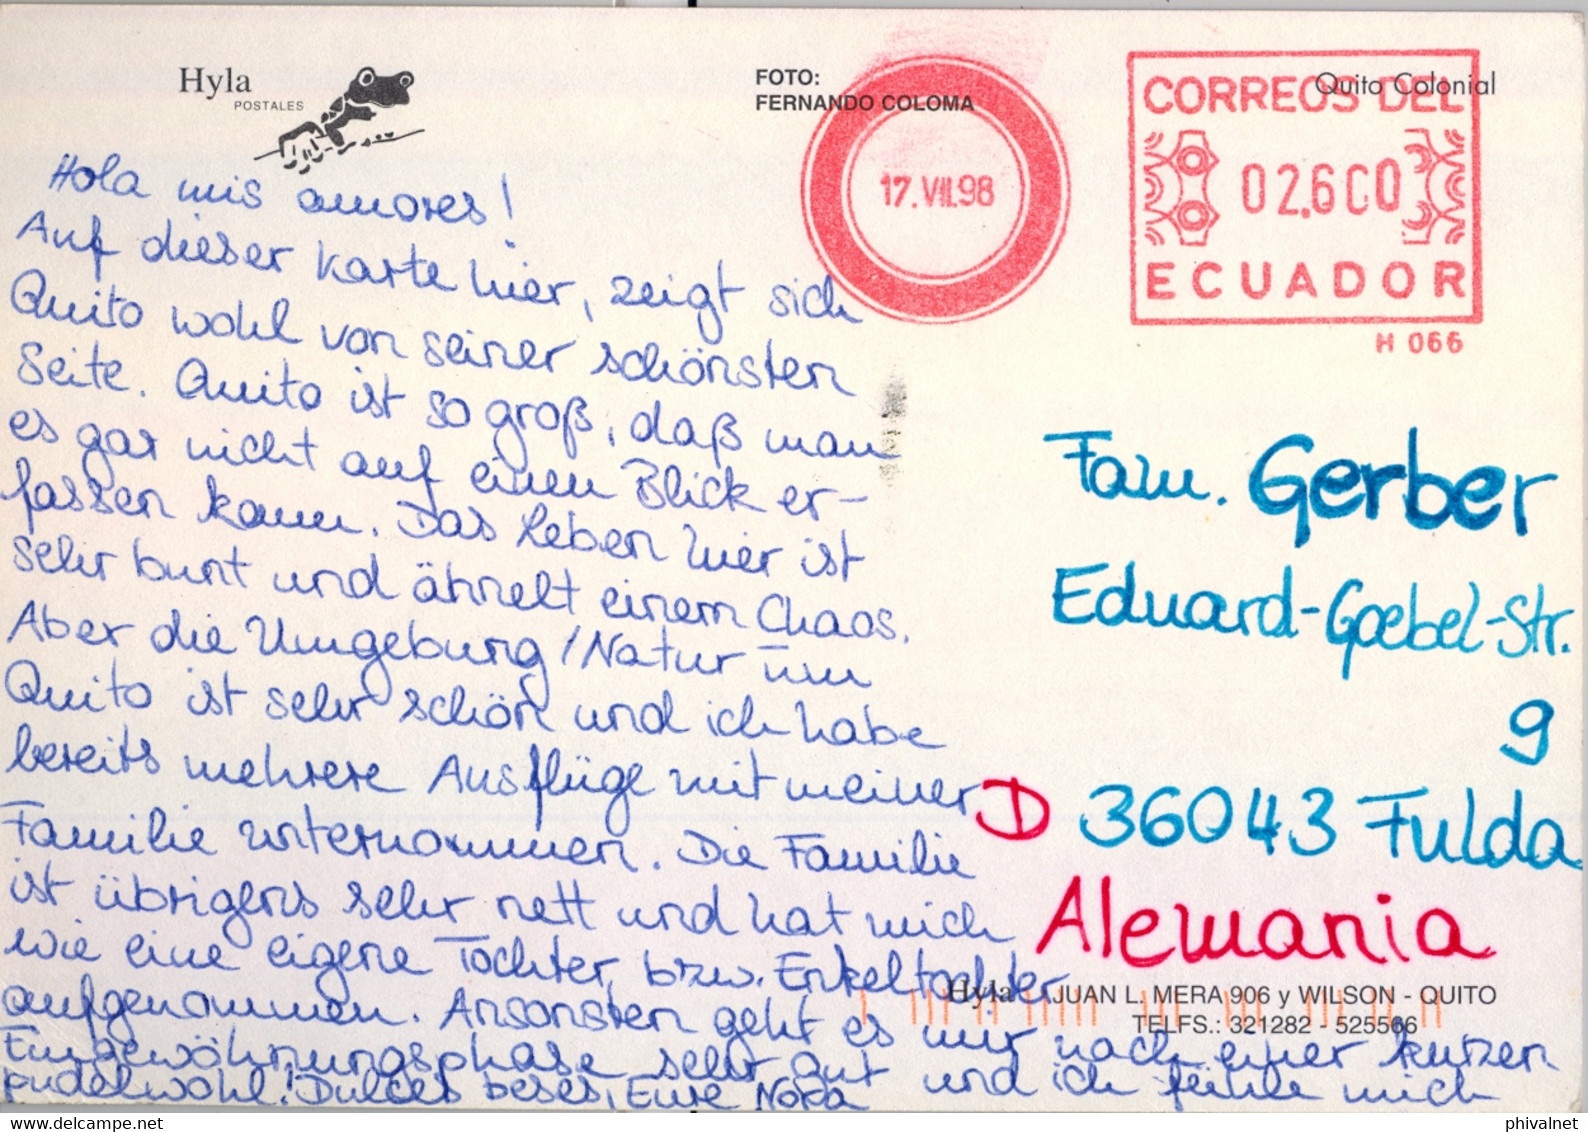 Hyla
POSTALES
FOTO:
FERNANDO COLOMA
Quito Colonial
17.VII.98
CORREOS DEL
02,600
ECUADOR
H 066
Hola mis amores!
Auf dieser Karte hier, zeigt sich
Quito wohl von seiner schönsten
Seite. Quito ist so groß, daß man
es gar nicht auf einen Blick er-
fassen kann. Das Leben hier ist
sehr bunt und ähnelt einem Chaos.
Aber die Umgebung/Natur um
Quito ist sehr schön und ich habe
bereits mehrere Ausflüge mit meiner
Familie unternommen. Die Familie
ist übrigens sehr nett und hat mich
wie eine eigene Tochter, bzw. Enkeltochter
aufgenommen. Ansonsten geht es mir nach einer kurzen
Eingewöhnungsphase sehr gut und ich fühle mich
pudelwohl! Dulces beses, Eure Nora
Fam. Gerber
Eduard-Goebel-Str.
9
D 36043 Fulda
Alemania
Hyla JUAN L. MERA 906 y WILSON - QUITO
TELFS.: 321282 - 525566
delcampe.net
phivalnet